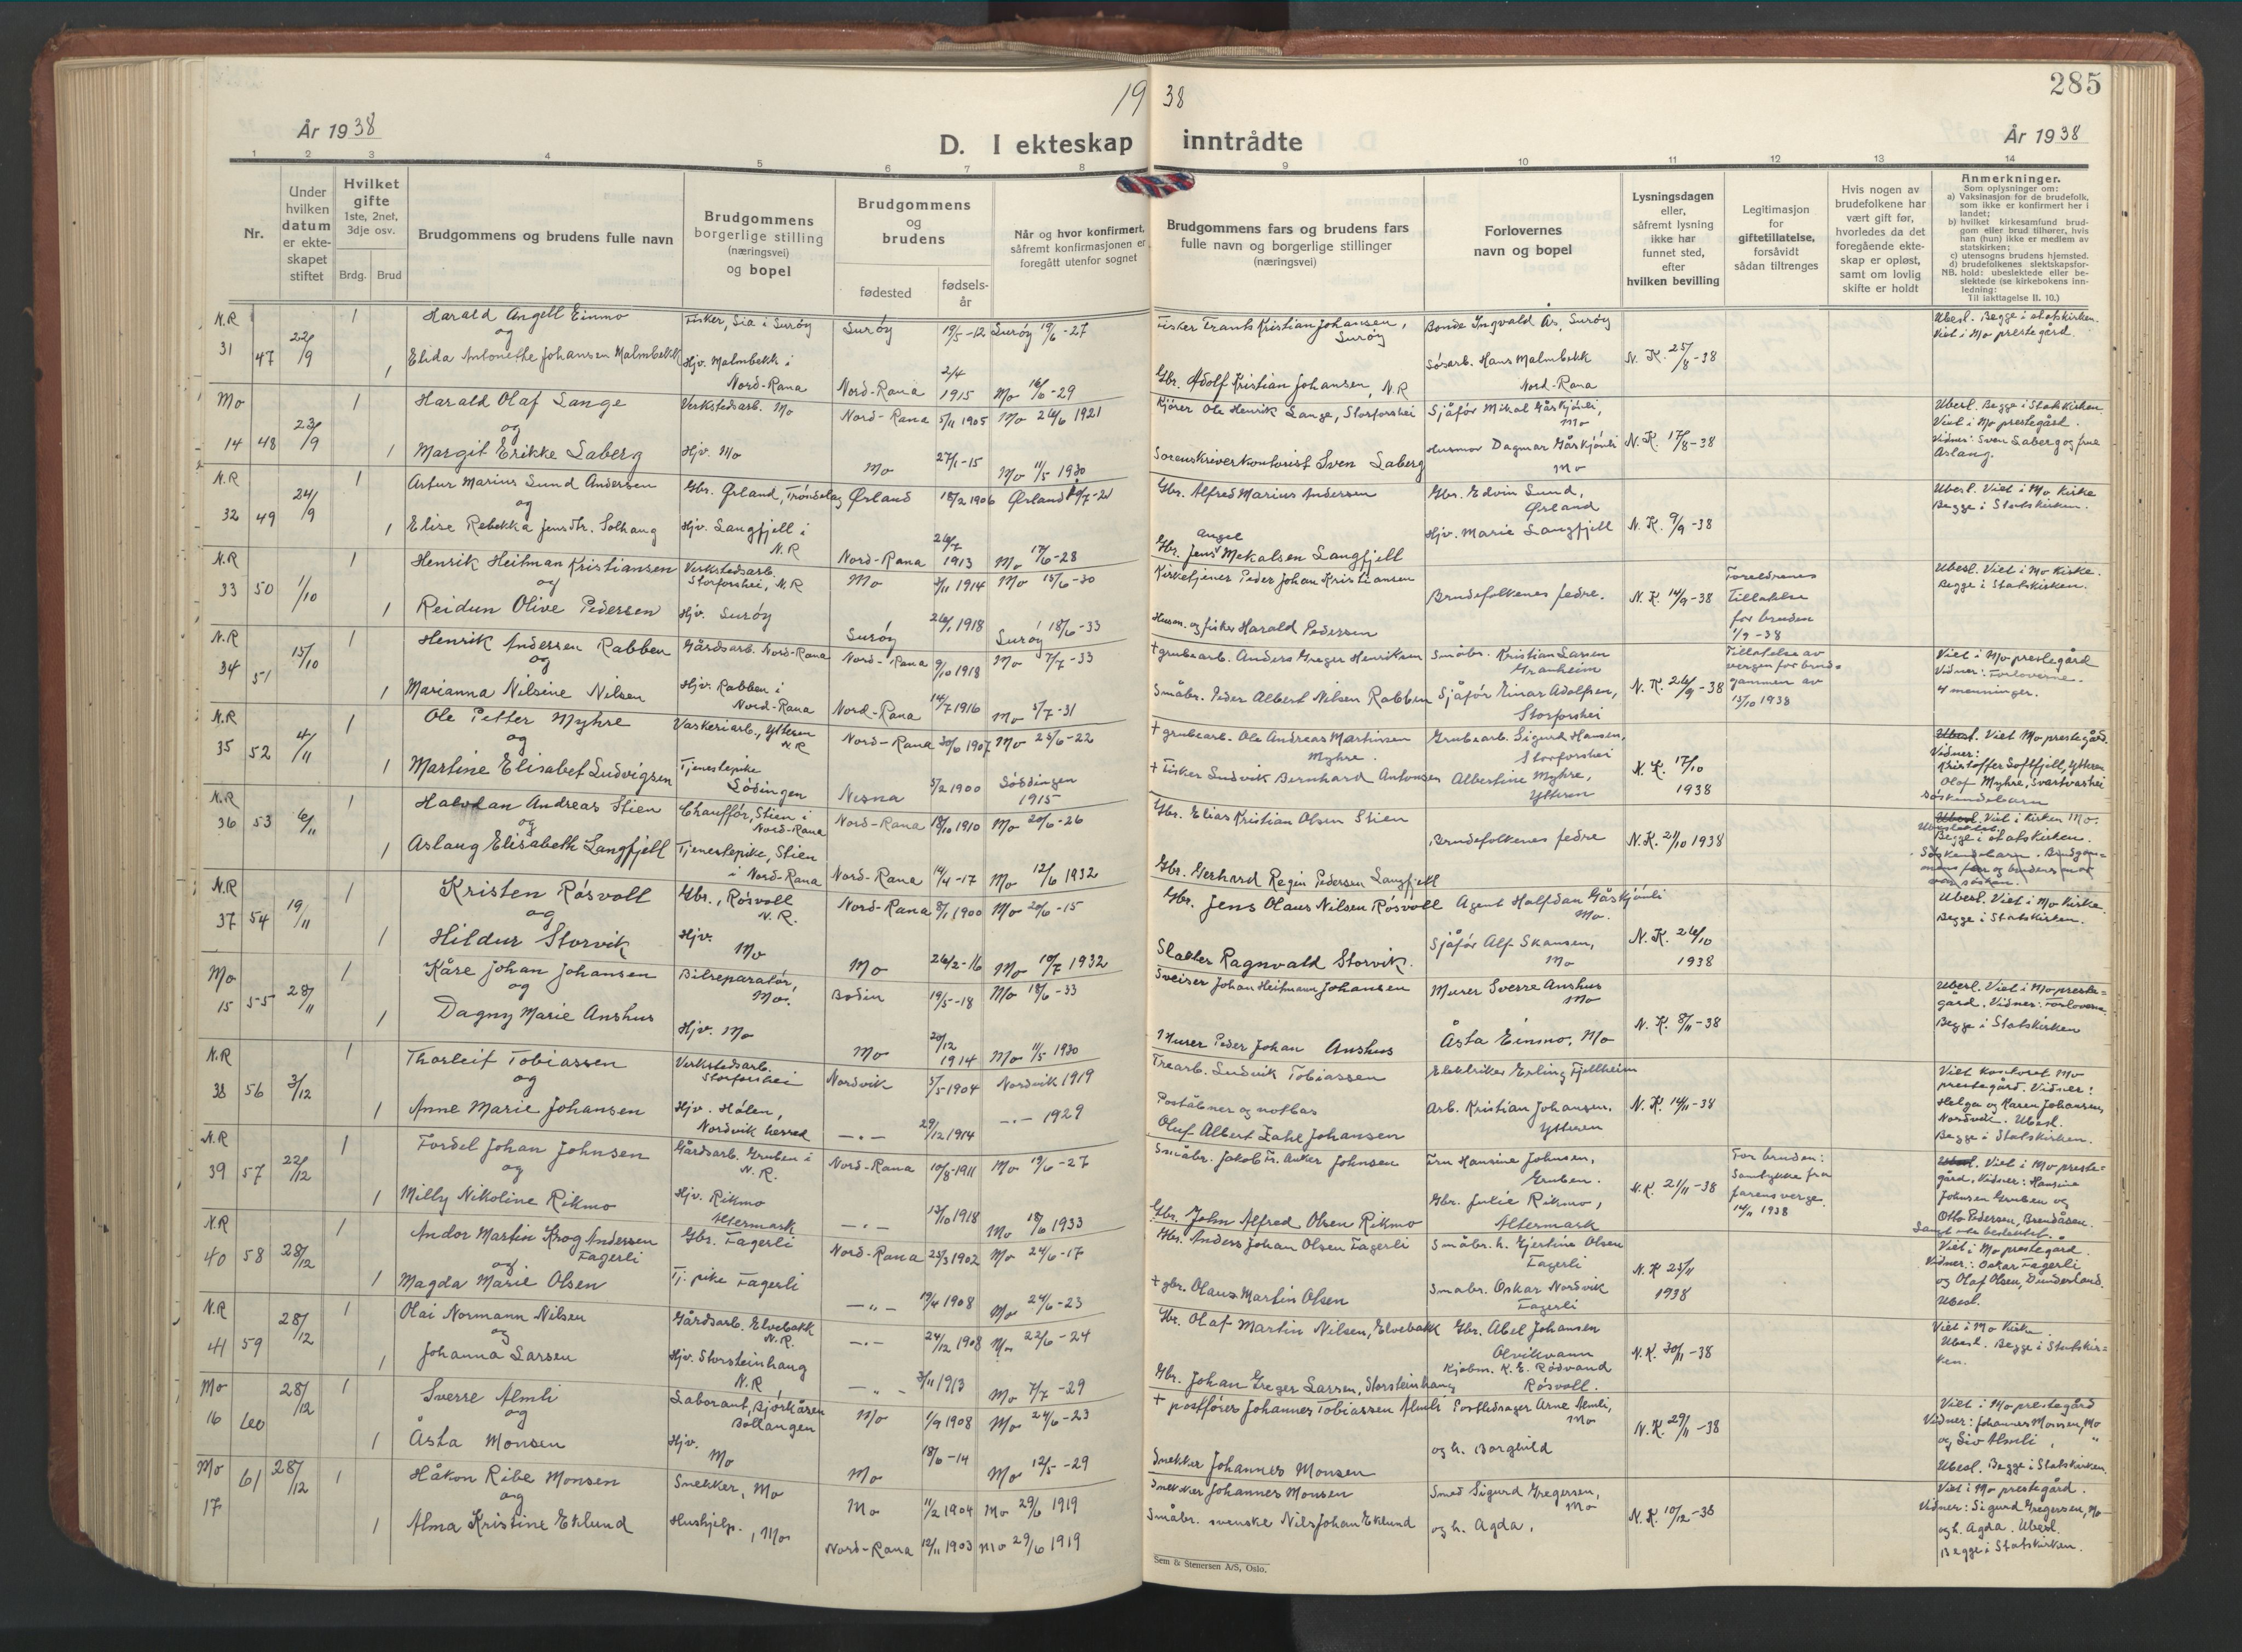 285
19 38
År 1938
D. I ekteskap inntrådte
År 1938
1 2 3 4 5 6 7 8 9 10 11 12 13 14
Nr.
Under
hvilken
datum
er ekte-
skapet
stiftet
Hvilket
gifte
1ste, 2net,
3dje osv.
Brdg. Brud
Brudgommens og brudens fulle navn
Brudgommens
borgerlige stilling
(næringsvei)
og bopel
Brudgommens
og
brudens
fødested
fødsels-
år
Når og hvor konfirmert,
såfremt konfirmasjonen er
foregått utenfor sognet
Brudgommens fars og brudens fars
fulle navn og borgerlige stillinger
(næringsvei)
Forlovernes
navn og bopel
Lysningsdagen
eller,
såfremt lysning
ikke har
funnet sted,
efter
hvilken bevilling
Legitimasjon
for
giftetillatelse,
forsåvidt
sådan tiltrenges
Hvis nogen av
brudefolkene har
vært gift før,
hvorledes da det
foregående ekte-
skap er opløst,
samt om lovlig
skifte er holdt
Anmerkninger.
Som oplysninger om:
a) Vaksinasjon for de brudefolk,
som ikke er konfirmert her i
landet;
b) hvilket kirkesamfund brud-
gom eller brud tilhører, hvis
han (hun) ikke er medlem av
statskirken;
c) utensogns brudens hjemsted.
d) brudefolkenes slektskapsfor-
NB. hold: ubeslektede eller be-
slektede (se kirkebokens inn-
ledning:
Til iakttagelse II. 10.)
N.R 31 47 22/9 1 Harald Angell Einmo Fisker, Sia i Surøy Surøy 19/5-12 Surøy 19/6-27 Fisker Frants Kristian Johansen, Surøy Bonde Ingvald Ås, Surøy Ubesl. Begge i statskirken.
og Viet i Mo prestegård.
1 Elida Antonethe Johansen Malmbekk Hjv. Malmbekk i Nord-Rana Nord-Rana 2/4 1915 Mo 16/6-29 Gbr. Adolf Kristian Johansen, N.R Søsarb. Hans Malmbekk Nord-Rana N.K. 25/8-38
Mo 14 48 23/9 1 Harald Olaf Lange Verkstedsarb. Mo Nord-Rana 5/11 1905 Mo 26/6 1921 Kjører Ole Henrik Lange, Storforshei Sjåfør Mikal Gåskjønli, Mo Ubesl. Begge i Statskirken.
og Viet i Mo prestegård.
1 Margit Erikke Laberg Hjv. Mo Mo 27/1-15 Mo 11/5 1930 Sorenskriverkontorist Sven Laberg Husmor Dagmar Gåskjønli Mo N.K. 17/8-38 Vidner: Sven Laberg og frue Aslaug.
N.R 32 49 24/9 1 Artur Marius Sund Andersen Gbr. Ørland, Trøndelag Ørland 18/2 1906 Ørland 10/7-21 Gbr. Alfred Marius Andersen Gbr. Edvin Sund, Ørland Ubesl. Viet i Mo Kirke
og Begge i Statskirken.
1 Elise Rebekka Jensdtr. Solhaug Hjv. Langfjell i N.R Nord-Rana 26/7 1913 Mo 17/6-28 Gbr. Jens Angel Mekalsen Langfjell Hjv. Marie Langfjell N.K. 9/9-38
N.R 33 50 1/10 1 Henrik Heitman Kristiansen Verkstedsarb. Storforshei, N.R Mo 3/11 1914 Mo 15/6-30 Kirketjener Peder Johan Kristiansen Brudefolkenes fedre. N.K. 14/9-38 Foreldrenes Tillatelse for bruden 1/9-38 Ubesl. Viet i Mo Kirke.
og Begge i Statskirken.
1 Reidun Olive Pedersen Hjv. Surøy Surøy 26/1 1918 Surøy 18/6-33 Husm. og fisker Harald Pedersen
N.R 34 51 15/10 1 Henrik Andersen Rabben Gårdsarb. Nord-Rana Nord-Rana 9/10 1918 Mo 7/7-33 + grubearb. Anders Greger Henriksen Småbr. Kristian Larsen Granheim Tillatelse av vergen for brudgommen av 15/10 1938 Viet i Mo prestegård
og Vidner: Forloverne.
1 Marianna Nilsine Nilsen Hjv. Rabben i Nord-Rana Nord-Rana 14/7 1916 Mo 5/7-31 Småbr. Peder Albert Nilsen Rabben Sjåfør Einar Adolfsen, Storforshei N.K. 26/9-38 4 menninger.
N.R 35 52 4/11 1 Ole Petter Myhre Vaskeriarb., Ytteren N.R Nord-Rana 30/6 1907 Mo 25/6-22 + grubearb. Ole Andreas Martinsen Myhre. Grubearb. Sigurd Hansen, Storforshei Ubesl. Viet Mo prestegård.
og Vidner: Kristoffer Softfjell, Ytteren
1 Martine Elisabet Ludvigsen Tjenestepike Lødingen Nesna 5/2 1900 Løddingen 1915 + Fisker Ludvik Bernhard Antonsen Albertine Myhre, Ytteren N.K. 17/10 1938 Olaf Myhre, Svartvashei søskendebarn
N.R 36 53 6/11 1 Halvdan Andreas Stien Chauffør, Stien i Nord-Rana Nord-Rana 18/10 1910 Mo 20/6-26 Gbr. Elias Kristian Olsen Stien Brudefolkenes fedre N.K. 21/10 1938 Ubesl. Viet i Kirken Mo.
og Ubeslektet. Begge i statskirken.
1 Aslaug Elisabeth Langfjell Tjenestepike, Stien i Nord-Rana Nord-Rana 14/4-17 Mo 12/6 1932 Gbr. Gerhard Regin Pedersen Langfjell Søskendebarn. Brudgommens far og brudens mor var søsken.
N.R 37 54 19/11 1 Kristen Røsvoll Gbr., Røsvoll N.R. Nord-Rana 8/1 1900 Mo 20/6-15 Gbr. Jens Olaus Nilsen Røsvoll Agent Halfdan Gåskjønli Mo. Ubesl. Viet i Mo Kirke.
og Begge i Statskirken.
1 Hildur Storvik Hjv. Mo Mo 26/2-16 Mo 10/7 1932 Slakter Ragnvald Storvik. Sjåfør Alf Skansen, Mo N.K. 26/10 1938
Mo 15 55 28/11 1 Kåre Johan Johansen Bilreparatør, Mo. Bodin 19/5-18 Mo 18/6-33 Sveiser Johan Heitmann Johansen Murer Sverre Anshus Mo Ubesl. Viet i Mo preste-
og gård. Vidner: Forloverne
1 Dagny Marie Anshus Hjv. Mo Mo 20/12 1914 Mo 11/5 1930 Murer Peder Johan Anshus Åsta Einmo, Mo N.K. 8/11-38 Begge i Statskirken
N.R 38 56 3/12 1 Thorleif Tobiassen Verkstedsarb. Storforshei Nordvik 5/5 1904 Nordvik 1919 Trearb. Ludvik Tobiassen Elektriker Erling Fjellheim Viet kontoret Mo
og prestegård. Vidner:
1 Anne Marie Johansen Hjv. Hølen, Nordvik herred —.— 29/12 1914 —.— 1929 Poståbner og notbas Oluf Albert Zahl Johansen Arb. Kristian Johansen, Ytteren N.K. 14/11-38 Helga og Karen Johansen, Nordvik. Ubesl. Begge i Statskirken.
N.R 39 57 22/12 1 Fordel Johan Johnsen Gårdsarb. Gruben i N.R. Nord-Rana 10/8-1911 Mo 19/6-27 Småbr. Jakob Fr. Anker Johnsen Fru Hansine Johnsen, Gruben. For bruden: Samtykke fra farens verge. 14/11 1938 Ubesl. Viet i Mo preste-
og gård. Vidner: Hansine
1 Milly Nikoline Rikmo Hjv. Rikmo Altermark —.— 13/10 1918 Mo 18/6 1933 Gbr. John Alfred Olsen Rikmo Gbr. Julie Rikmo, Altermark N.K. 21/11-38 Johnsen Gruben og Otto Pedersen, Brendåsen.
N.R 40 58 28/12 1 Andor Martin Krog Andersen Fagerli Gbr. Fagerli Nord-Rana 25/3 1902 Mo 24/6-17 Gbr. Anders Johan Olsen Fagerli Småbr. h. Gjertine Olsen Fagerli Viet i Mo prestegård.
og Vidner: Oskar Fagerli
1 Magda Marie Olsen Tj. pike Fagerli —"— 19/4 1908 Mo 24/6-23 + gbr. Olaus Martin Olsen Småbr. Oskar Nordvik Fagerli N.K 25/11 1938 og Olaf Olsen, Dunderland. Ubesl.
N.R 41 59 28/12 1 Olai Normann Nilsen Gårdsarb. Elvebakk N.R. —.— 24/12 1908 Mo 22/6-24 Gbr. Olaf Martin Nilsen, Elvebakk Gbr. Abel Johansen Olvikvann Viet i Mo Kirke
og Ubesl. Begge i Statskir-
1 Johanna Larsen Hjv. Storsteinhaug N.R —"— 3/11 1913 Mo 7/7-29 Gbr. Johan Greger Larsen, Storsteinhaug Kjøbm. K. E. Rødvand Røsvoll. N.K. 30/11-38 ken.
Mo 16 60 28/12 1 Sverre Almli Laborant, Bjørkåsen Ballangen Mo 1/9 1908 Mo 24/6-23 + postfører Johannes Tobiassen Almli Postbedrager Arne Almli, Mo Viet i Mo prestegård
og Vidner: Johannes Monsen, Mo
1 Åsta Monsen Hjv. Mo Mo 18/6-14 Mo 12/5-29 Snekker Johannes Monsen og h. Borghild N.K. 29/11-38 og Siv Almli, " Ubesl. Begge i Statskirken.
Mo 17 61 28/12 1 Håkon Ribe Monsen Snekker, Mo Mo 11/2 1904 Mo 29/6 1919 Snekker Johannes Monsen Smed Sigurd Gregersen, Mo Viet i Mo prestegård.
og Vidner: Sigurd Gregersen, Mo
1 Alma Kristine Eklund Hushjelp., Mo Nord-Rana 12/11 1903 Mo 29/6 1919 Småbr. svenske Nils Johan Eklund og h. Agda. N.K. 10/12-38 og h. Agda. Ubesl. Begge i Statskirken.
Sem & Stenersen A/S, Oslo.